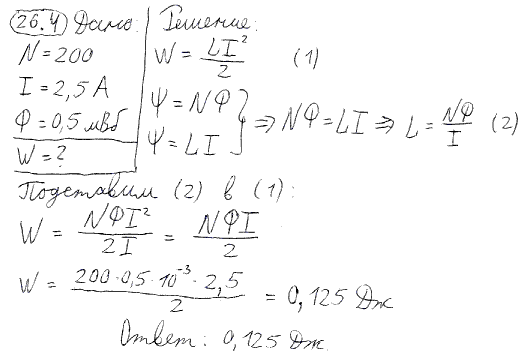 26.4 Дано:
N = 200
I = 2,5 А
Ф = 0,5 мВб
W = ?
Решение:
W = LI²/2 (1)
Ψ = NФ
Ψ = LI } ⇒ NФ = LI ⇒ L = NФ/I (2)
Подставим (2) в (1):
W = NФI²/2I = NФI/2
W = 200·0,5·10⁻³·2,5/2 = 0,125 Дж
Ответ: 0,125 Дж.